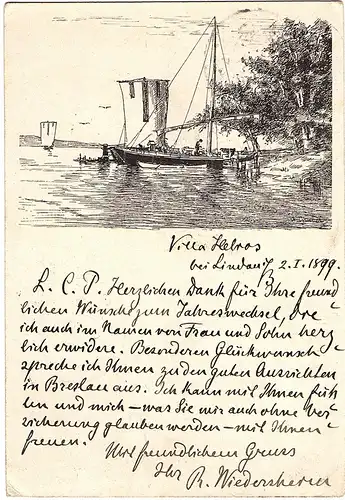 Villa Helios
bei Lindau i/ 2. I. 1899.
L. C. P. Herzlichen Dank für Ihre freund
lichen Wünsche zum Jahreswechsel, die
ich auch im Namen von Frau und Sohn herz
lich erwidere. Besonderen Glückwunsch
spreche ich Ihnen zu den guten Aussichten
in Breslau aus. Ich kann mit Ihnen füh
len und mich – was Sie mir auch ohne Ver
sicherung glauben werden – mit Ihnen
freuen.
Mit freundlichem Gruss
Ihr R. Wiedersheim